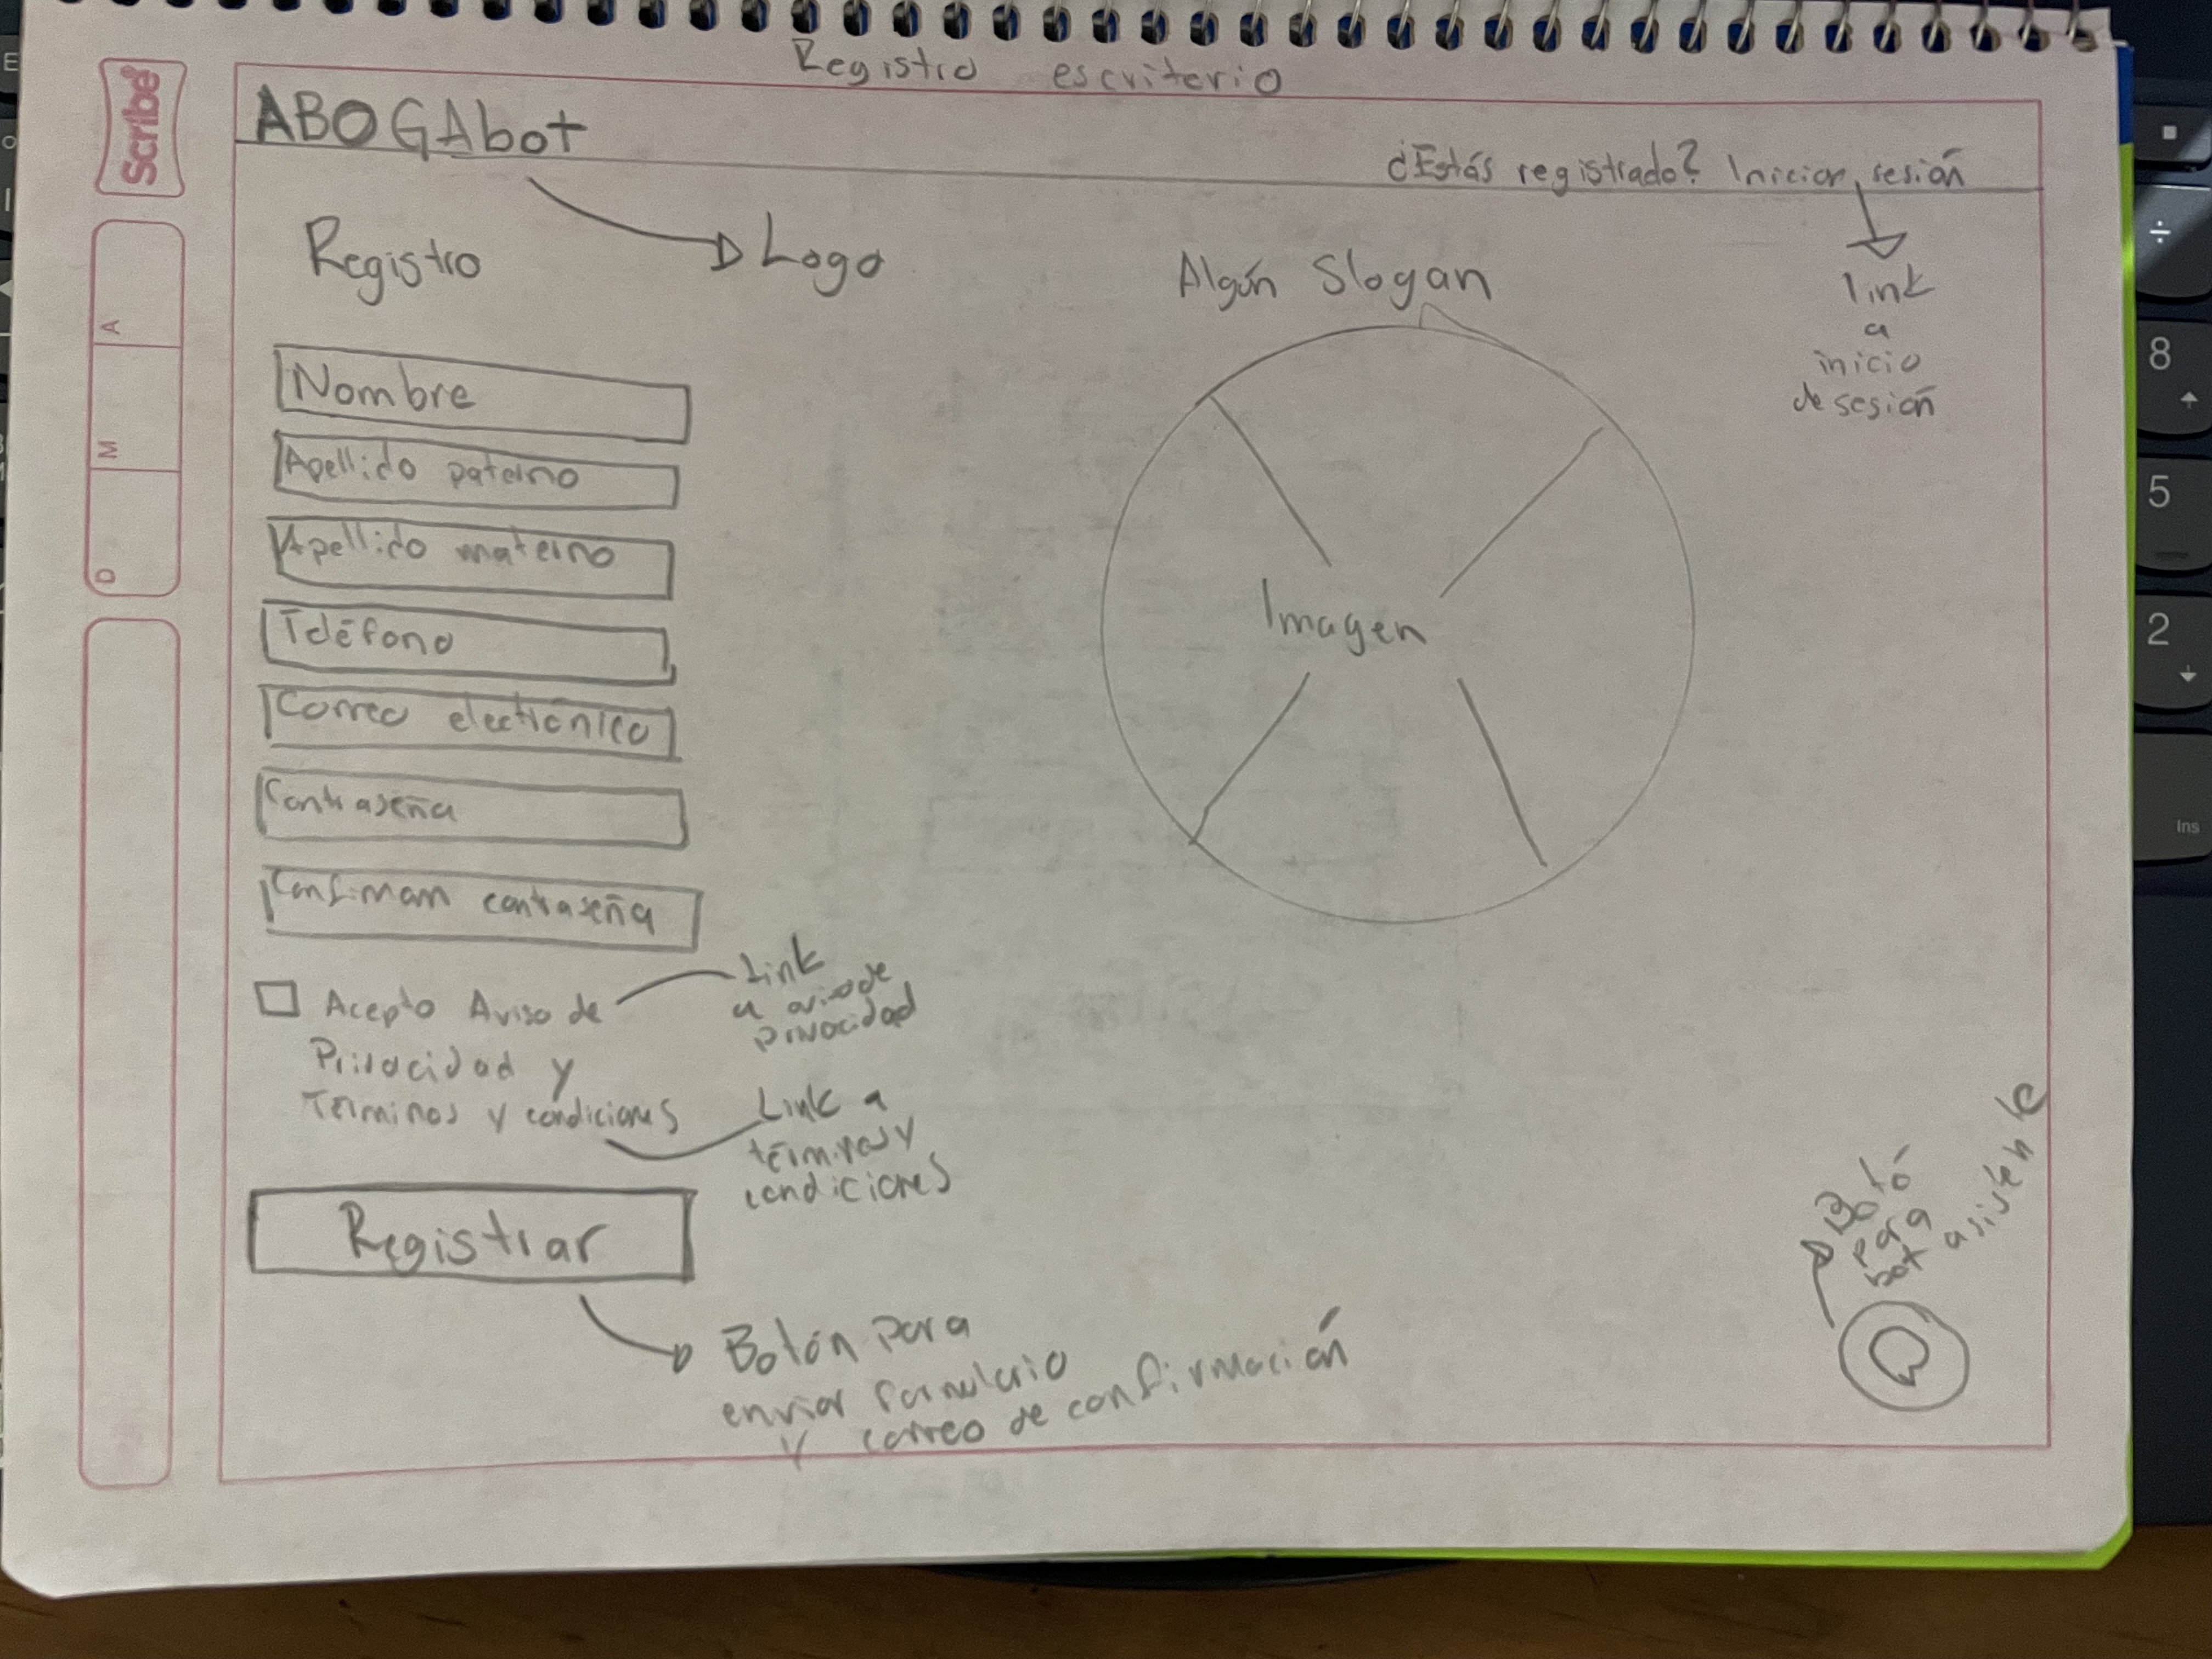 Registro escritorio
Scribe
ABOGAbot
¿Estás registrado? Iniciar sesión
Registro
Logo
Algún Slogan
link
a
inicio
de sesión
Nombre
Apellido paterno
Apellido materno
Teléfono
Correo electrónico
Contraseña
Confirmar contraseña
Imagen
Acepto Aviso de
Privacidad y
Términos y condiciones
Link
a aviso de
privacidad
Link a
términos y
condiciones
Registrar
Botón para
enviar formulario
y correo de confirmación
Botó
para
bot asistente
A
M
D
E
8
5
2
Ins
÷